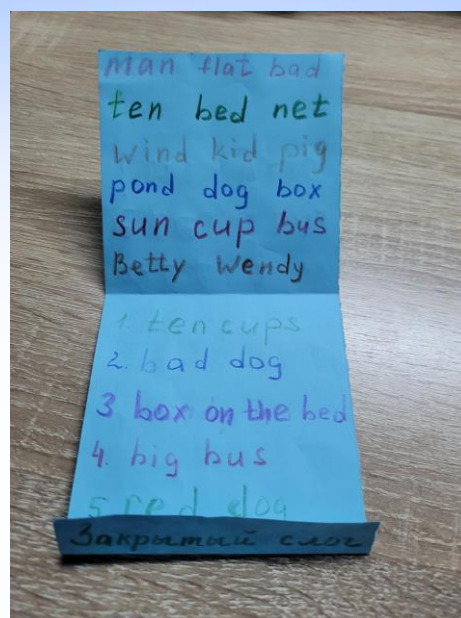 man flat bad
ten bed net
wind kid pig
pond dog box
sun cup bus
Betty Wendy
1. ten cups
2. bad dog
3 box on the bed
4. big bus
5. red dog
Закрытый слог